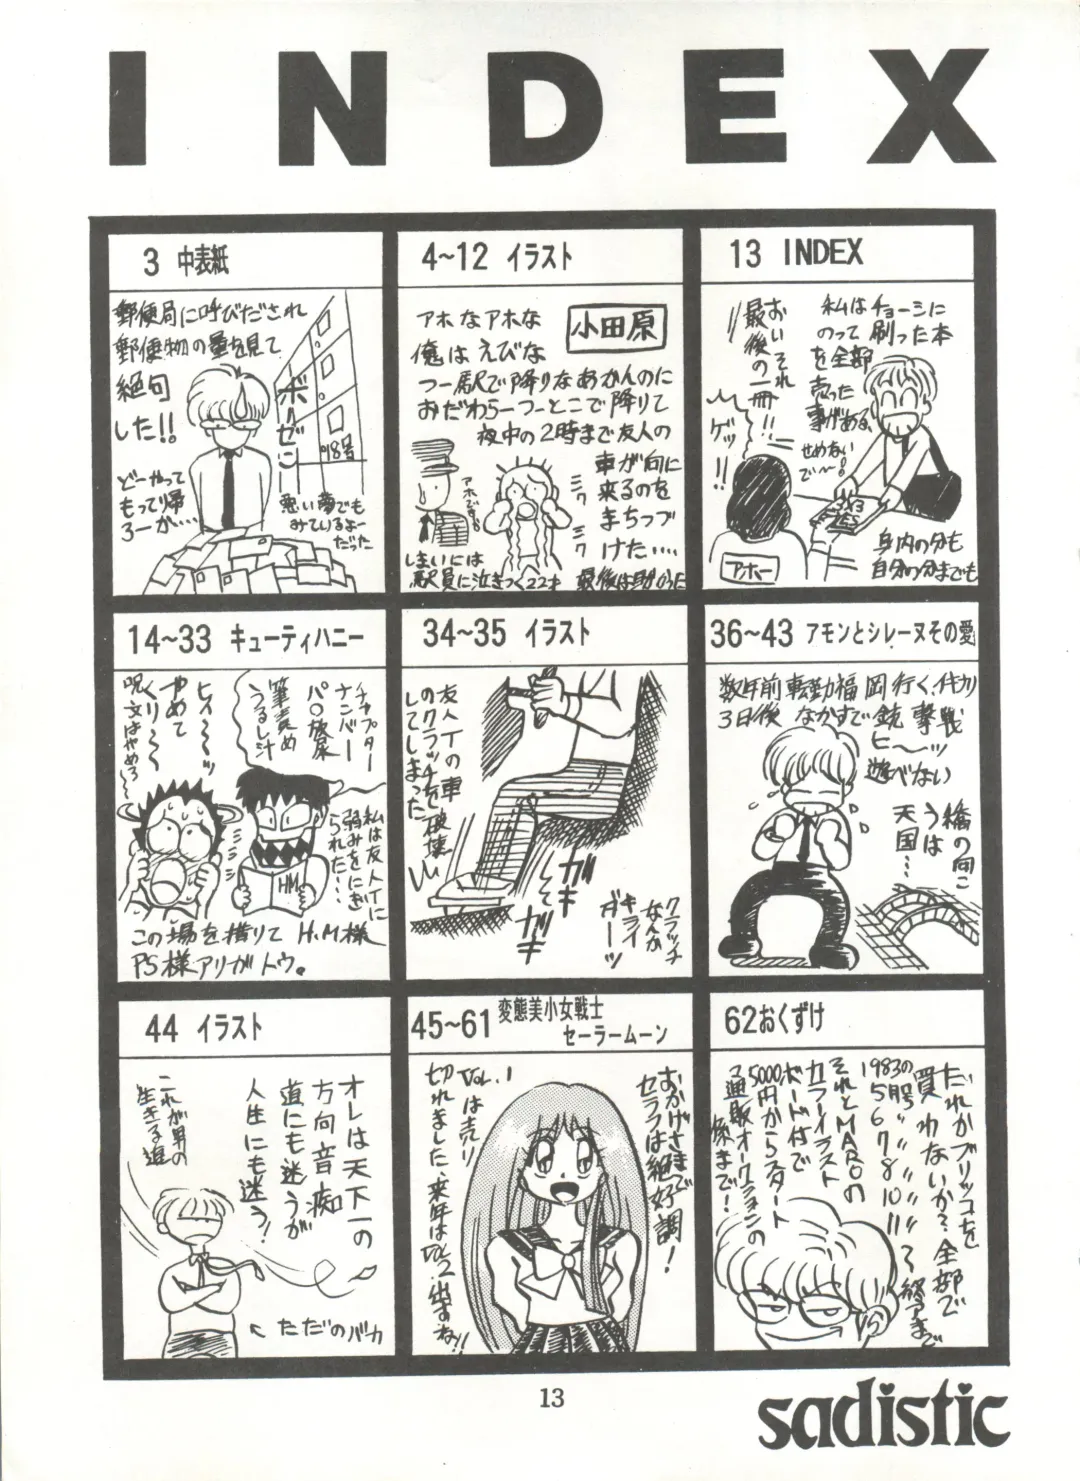 INDEX
3 中表紙
郵便局に呼びだされ
郵便物の量を見て
絶句
した!!
ボーゼン
'98号
どーやって
もって帰
ろーか…
悪い夢でも
みているよー
だった
4~12 イラスト
アホなアホな
俺はえびな
小田原
つー駅で降りなあかんのに
おだわらーつーとこで降りて
夜中の2時まで友人の
車が向に
来るのを
まちつづ
けた….
アホです。
ミワ
ミワ
しまいには
駅員に泣きつく22才
最後は助かった
13 INDEX
私はチョーシに
のって刷った本
を全部
売った
事がある。
おいそれ
最後の一冊!!
ゲッ!!
せめない
で〜!
アホー
身内の分も
自分の分までも
14~33 キューティハニー
チャプター
ナンバー
パ○放尿
筆責め
うるし汁
ヒィ〜〜ッ
やめて
くり〜〜
呪文はやめろ〜
私は友人Tに
弱みをにぎ
られた…
HM
この場を借りて H.M様
PS様アリガトウ。
34~35 イラスト
友人Tの車
のクラッチを破壊
してしまった
ガキ
して
ガキ
クラッチ
なんか
キライ
ガーッ
36~43 アモンとシレーヌその愛
数年前転勤福岡行く、件か
3日後 なかすで銃撃戦
ヒ〜ッ
遊べない
橋の向こ
うは
天国…
44 イラスト
オレは天下一の
方向音痴
道にも迷うが
人生にも迷う!
これが男の
生きる道
ただのバカ
45~61 変態美小女戦士
セーラームーン
おかげさまで
セラフは絶好調!
Vol.1は売り
切れました、来年は
VOL2出すね!!
62おくずけ
だれかブリッコを
買わないか? 全部で
1983の
5月号〃〃〃〃〃〃〜終了まで
5 6 7 8 10 11
それとMAROの
カラーイラスト
ボード付で
5000円からスタート
通販オークションの
係まで!
13
sadistic